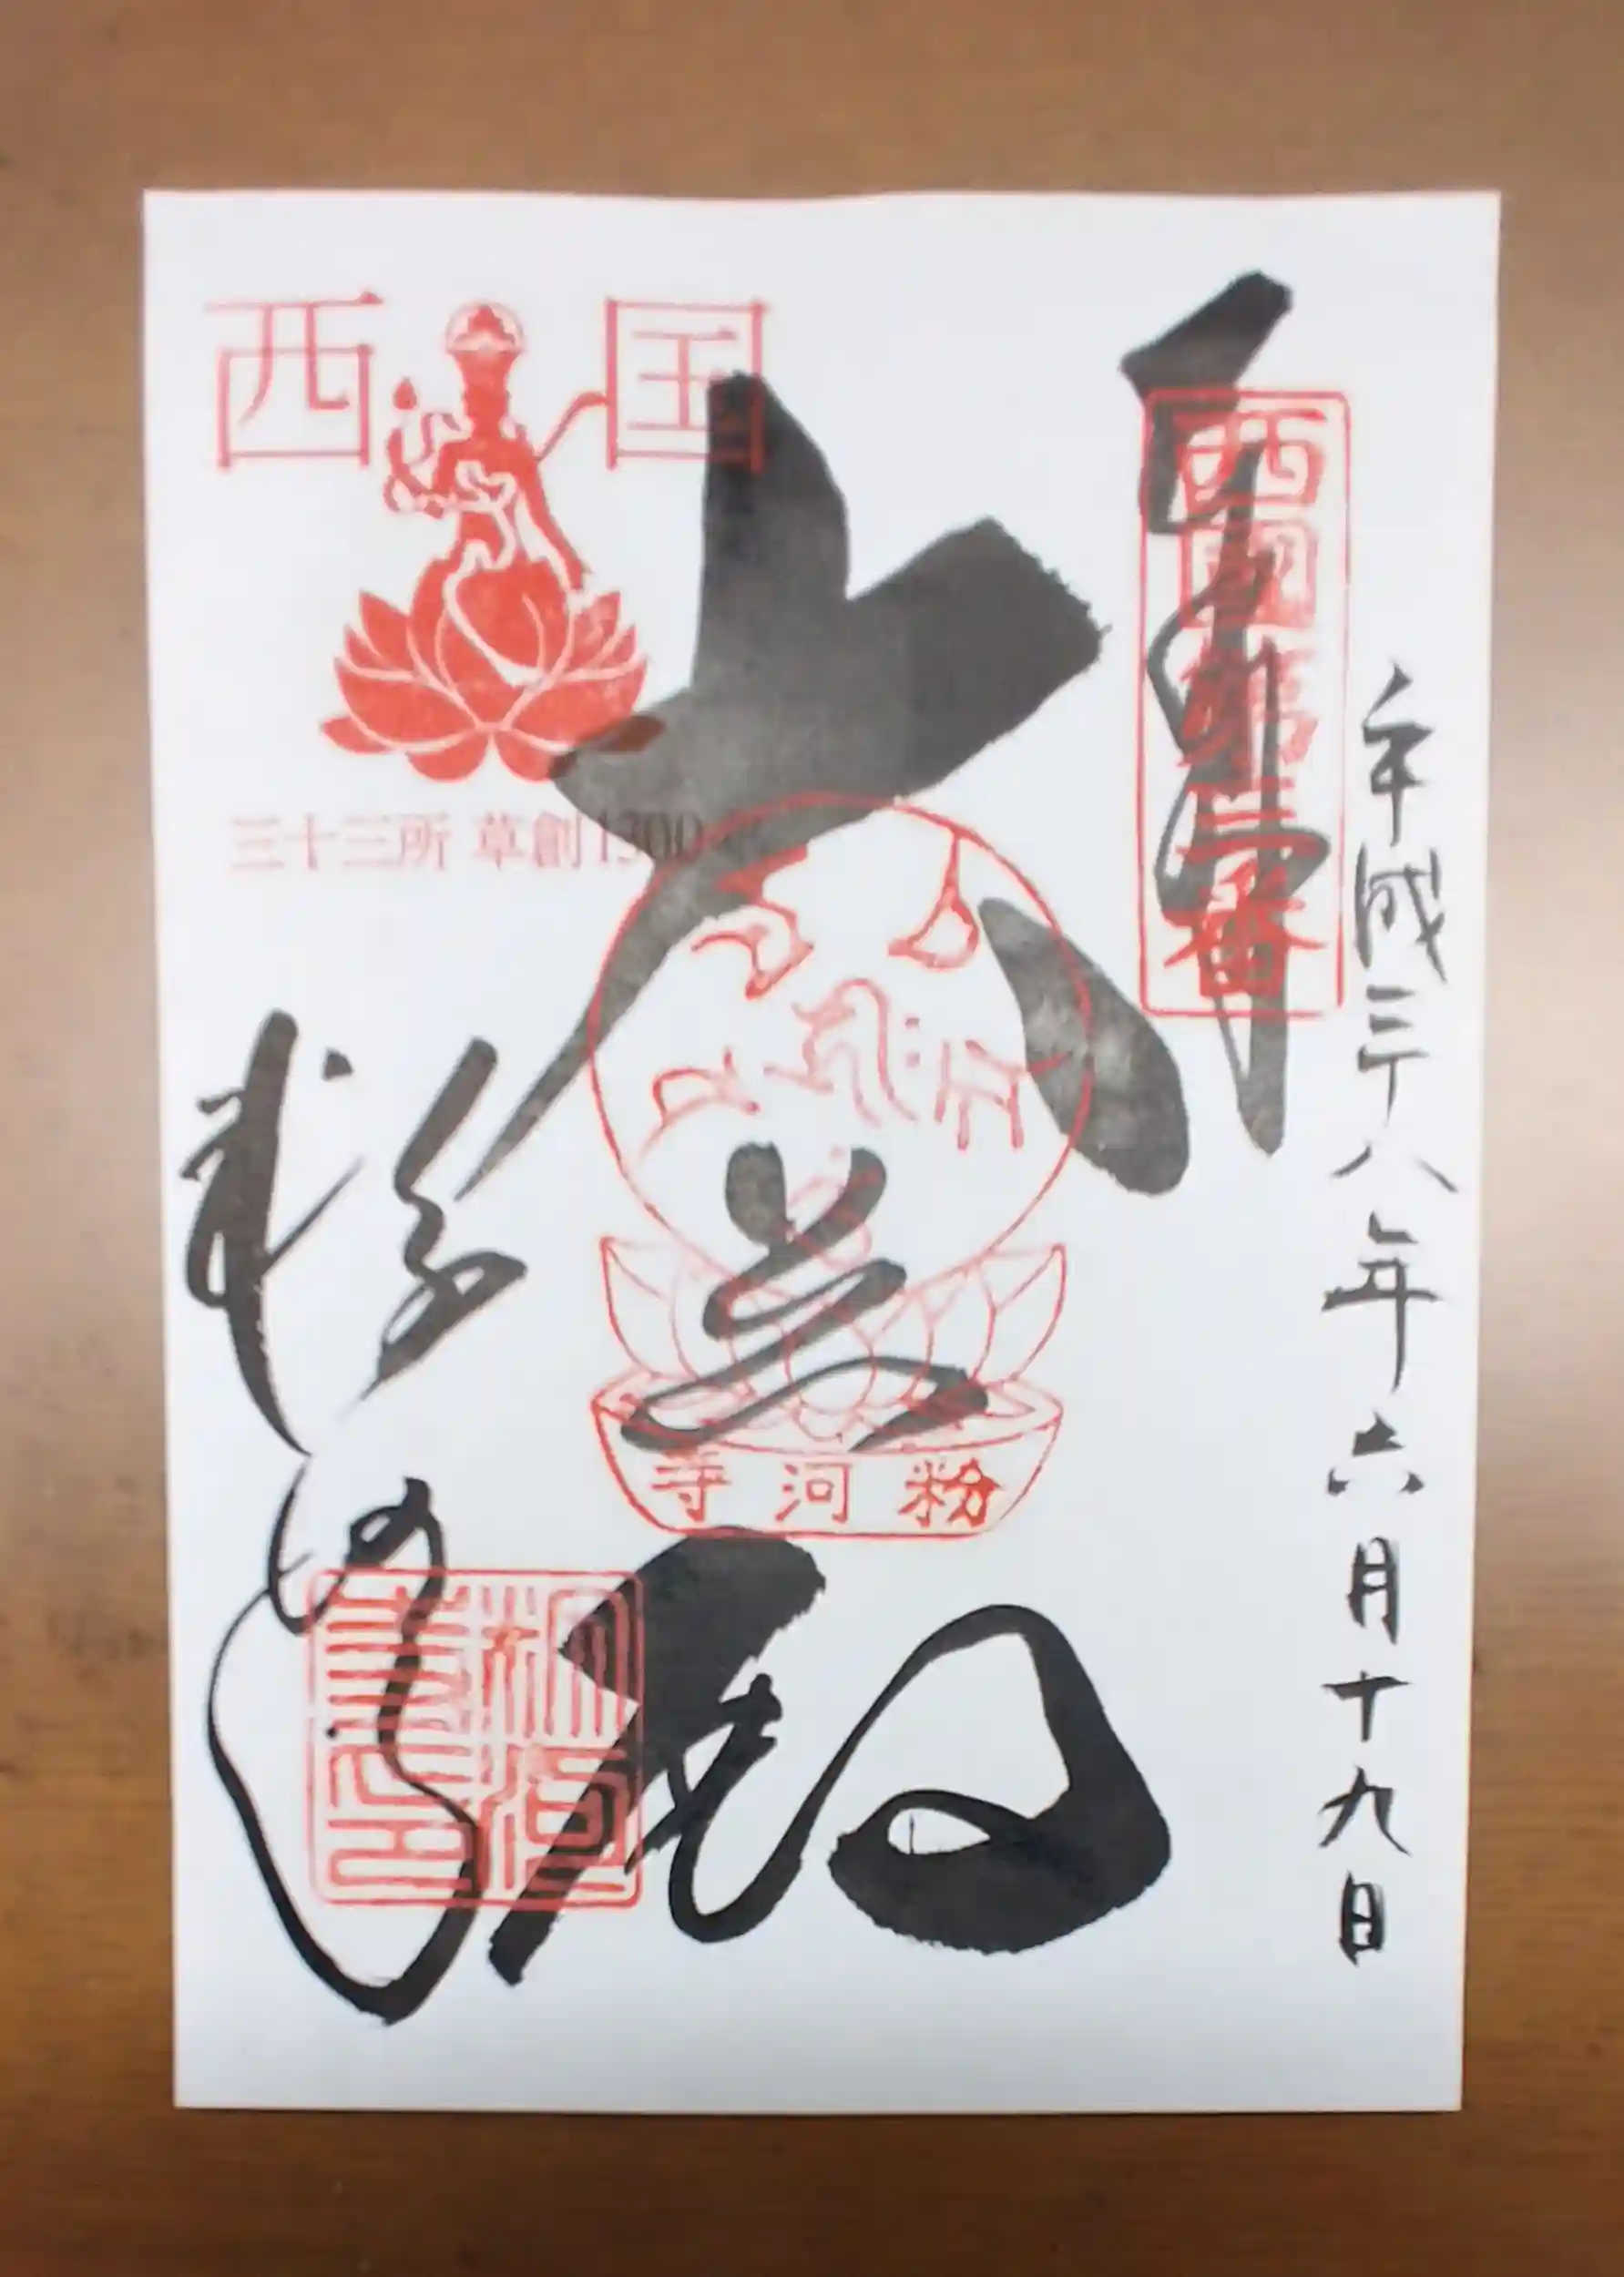 奉拝
西國第三番
平成二十八年六月十九日
西国
三十三所 草創1300年
大悲殿
粉河寺
粉河寺
粉河寺印